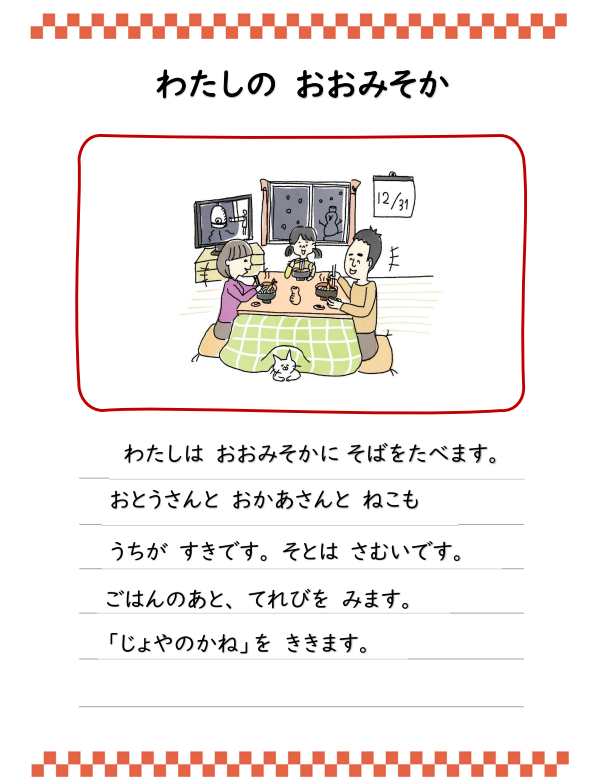 わたしの おおみそか
12/31
わたしは おおみそかに そばをたべます。
おとうさんと おかあさんと ねこも
うちが すきです。そとは さむいです。
ごはんのあと、てれびを みます。
「じょやのかね」を ききます。